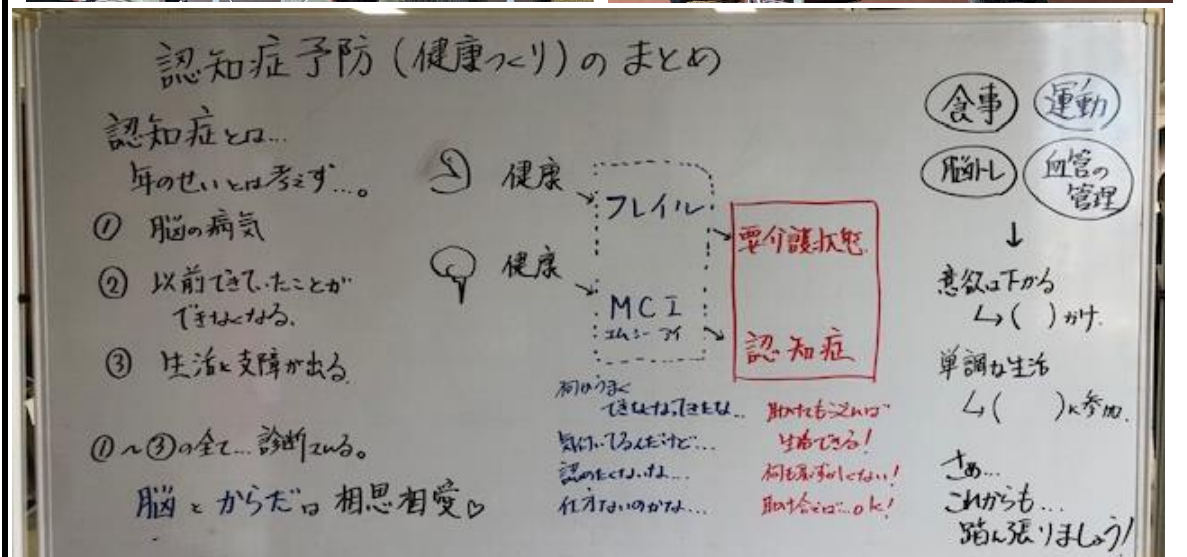 認知症予防(健康づくり)のまとめ
認知症とは…
年のせいとは考えず…。
① 脳の病気
② 以前できていたことが
できなくなる。
③ 生活に支障が出る。
①〜③の全て…診断される。
脳とからだは相思相愛♡
健康
フレイル
要介護状態
健康
MCI
エムシーアイ
認知症
何かうまく
できなくなってきたな…
気付いてるんだけど…
認めたくないな…
仕方ないのかな…
助けてもらえれば
生活できる!
何も恥ずかしくない!
助け合えば…ok!
食事
運動
脳トレ
血管の
管理
↓
意欲は下がる
↳( )かけ.
単調な生活
↳( )に参加.
さぁ…
これからも…
踏ん張りましょう!